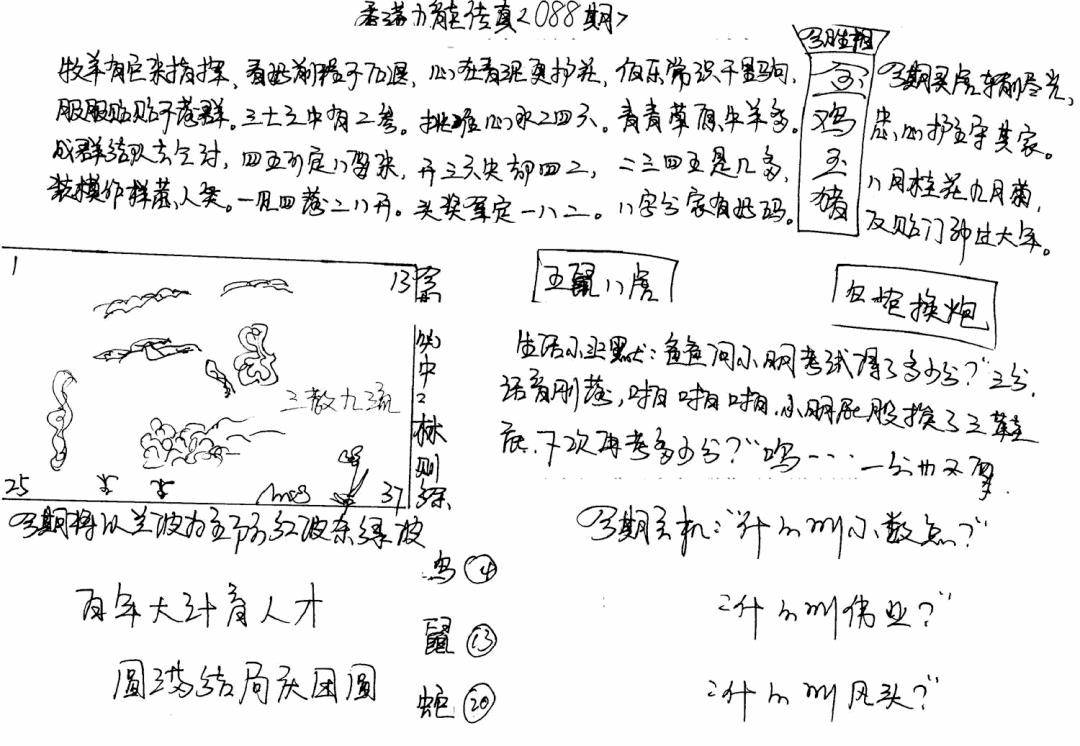 香港九龍传真<088期>
牧羊有它来指挥，看此前程千万退，心在青泥更护花，伯乐常识千里驹，
服服贴贴不落群。三十之中有二卷。挑难心水二四六。青青草原牛羊多。
成群结队去它对，四五可定八要来，开三六失却四二，二三四五是几多，
装模作样蒸人粪。一见四落二八开。头奖单定一八二。八字分家有此码。
今期买虎辆尽光，
忠心护主守其家。
八月桂花九月菊，
反贴门神过大年。
鸡
玉
猪
1
13
三教九流
25
37
中
林
则
徐
五鼠八虎
换炮
生活小幽默：爸爸问小明考试得了多少分？"三分，
话音刚落，啪啪啪，小明屁股挨了三鞋
底，下次再考多少分？"呜····一分也不要
今期将以兰波为主防红波杀绿波
百年大计育人才
圆满结局庆团圆
鸟④
鼠⑬
蛇⑳
今期玄机："什么叫小数点？"
"什么叫伟业？"
"什么叫风头？"